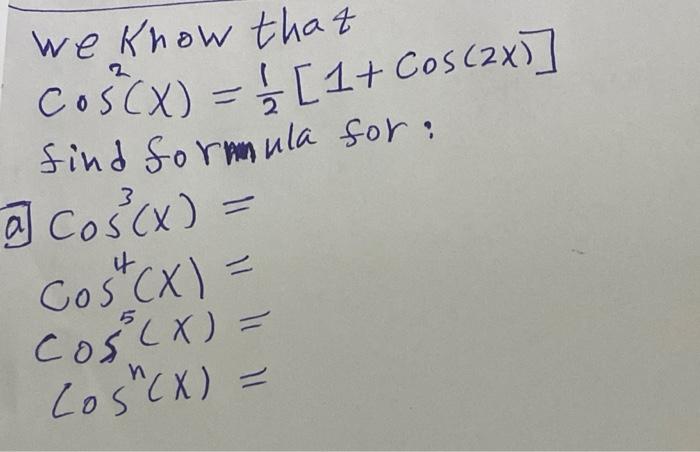 we know that
cos²(x) = 1/2 [1 + cos(2x)]
find formula for:
a cos³(x) =
cos⁴(x) =
cos⁵(x) =
cosⁿ(x) =